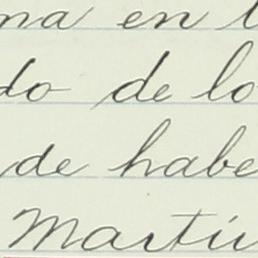 na en l
do de lo
de habe
Martí